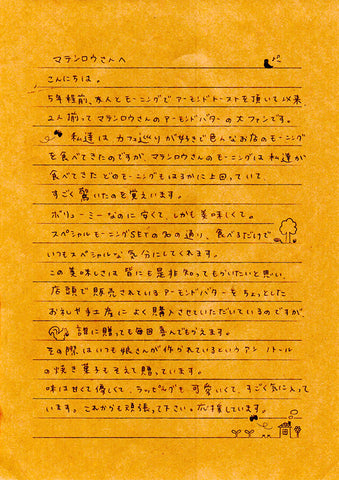 マテンロウさんへ
こんにちは。
5年程前、友人とモーニングでアーモンドトーストを頂いて以来
2人揃ってマテンロウさんのアーモンドバターの大ファンです。
私達はカフェ巡りが好きで色んなお店のモーニング
を食べてきたのですが、マテンロウさんのモーニングは私達が
食べてきたどのモーニングもはるかに上回っていて
すごく驚いたのを覚えています。
ボリューミーなのに安くて、しかも美味しくて。
スペシャルモーニングSETの名の通り、食べるだけで
いつもスペシャルな気分にしてくれます。
この美味しさは皆にも是非知ってもらいたいと思い、
店頭で販売されているアーモンドバターをちょっとした
お礼や手土産によく購入させていただいているのですが、
誰に贈っても毎回喜んでもらえます。
その際はいつも娘さんが作られているというアン トール
の焼き菓子もそえて贈っています。
味は甘くて優しくて、ラッピングも可愛いくて、すごく気に入って
います。これからも頑張って下さい。応援しています。